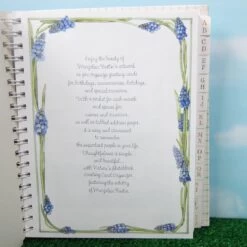 Enjoy the beauty of
Marjolein Bastin's artwork
as you organize greeting cards
for birthdays, anniversaries, holidays,
and special occasions.
With a pocket for each month
and spaces for
names and occasions,
as well as tabbed address pages,
it is easy and convenient
to remember
the important people in your life.
Thoughtfulness is simple
and beautiful
with Nature's Sketchbook
Greeting Card Organizer
featuring the artistry
of Marjolein Bastin.
A
B
C
D
E
F
G
H